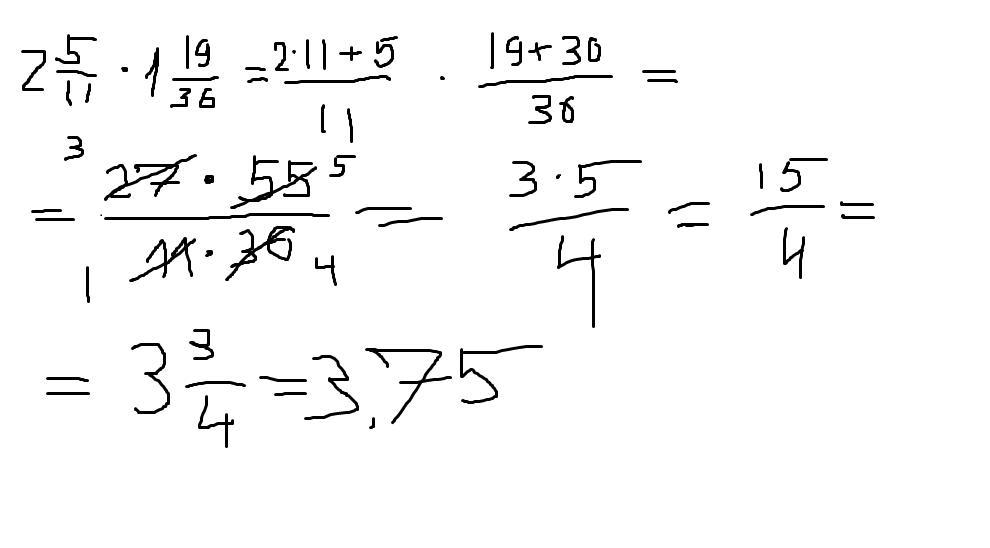 2 5/11 · 1 19/36 = (2·11+5)/11 · (19+36)/36 =
= (27 · 55)/(11 · 36) 3 5 1 4 = (3·5)/4 = 15/4 =
= 3 3/4 = 3,75